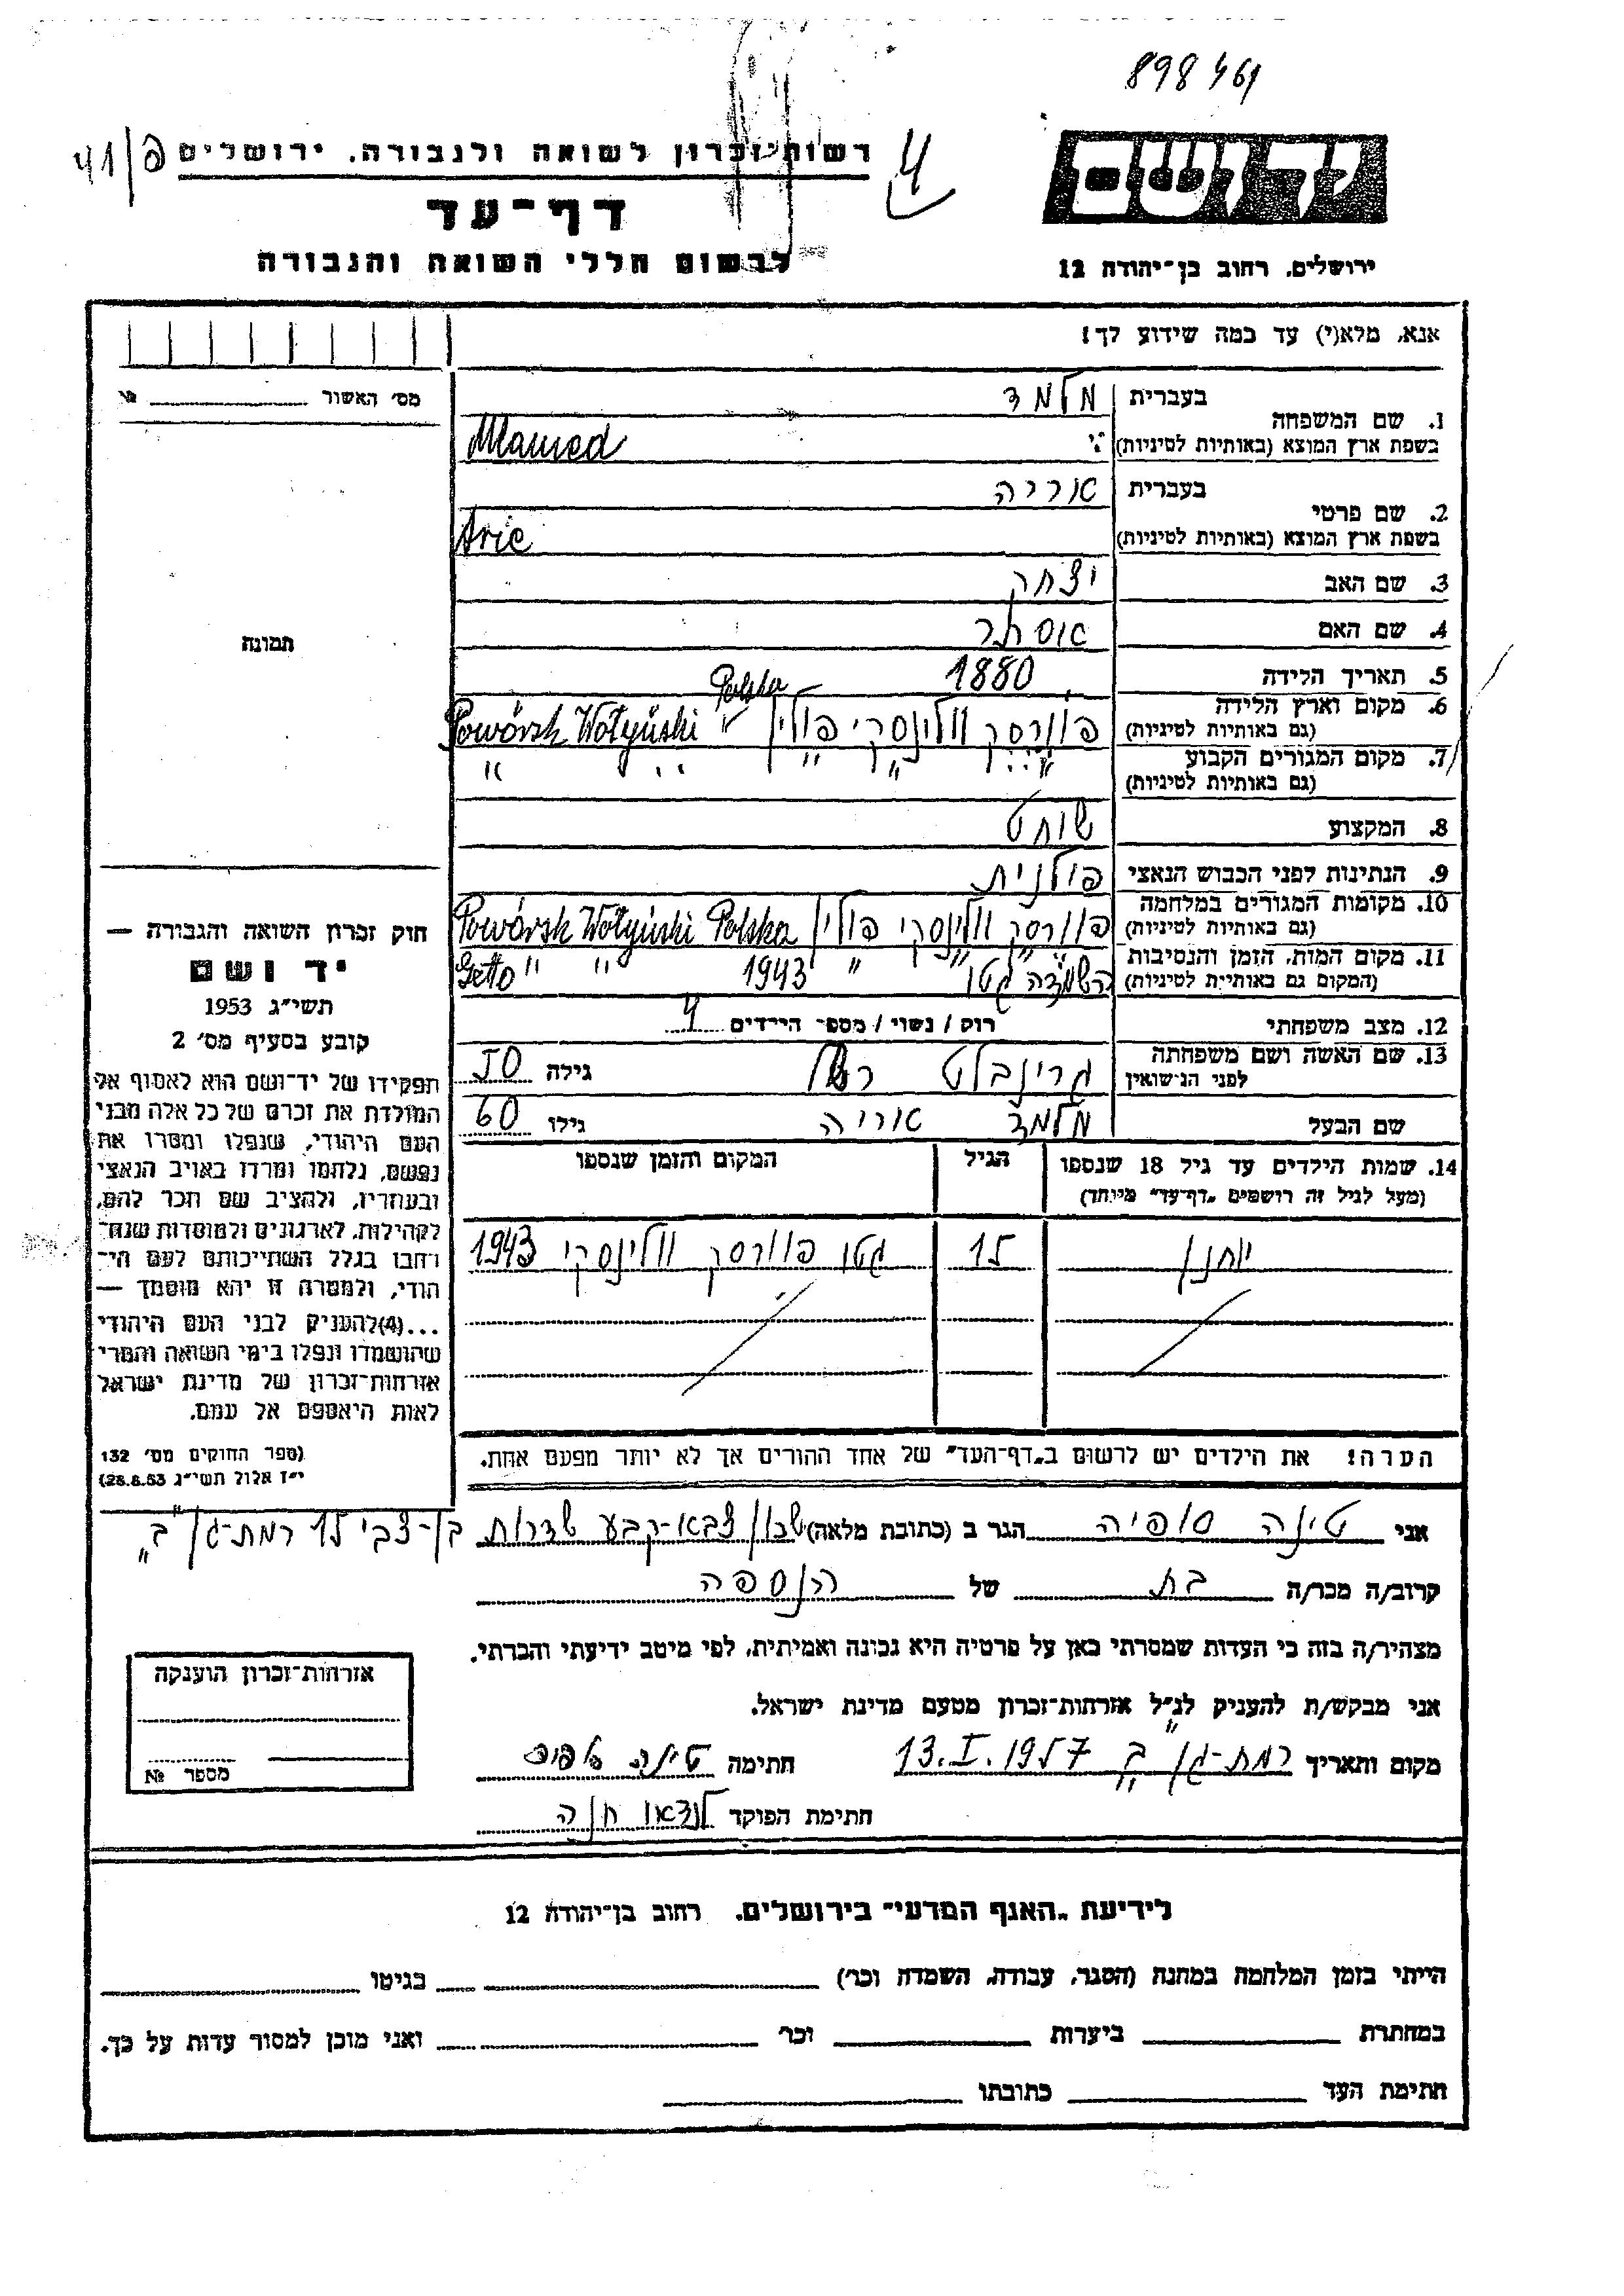 898461
41/פ
רשות-זכרון לשואה ולגבורה, ירושלים
4
יד ושם
דף-עד
לרשום חללי השואה והגבורה
ירושלים, רחוב בן-יהודה 12
אנא, מלא(י) עד כמה שידוע לך!
מס׳ האשור №
1. שם המשפחה בעברית מלמד
בשפת ארץ המוצא (באותיות לטיניות) Mlamed
2. שם פרטי בעברית אריה
בשפת ארץ המוצא (באותיות לטיניות) Arie
3. שם האב יצחק
4. שם האם אסתר
תמונה
5. תאריך הלידה 1880
6. מקום וארץ הלידה פוורסק ווולינסקי פולין Powórsk Wołyński Polska
(גם באותיות לטיניות)
7. מקום המגורים הקבוע " " " " "
(גם באותיות לטיניות)
8. המקצוע שוחט
9. הנתינות לפני הכבוש הנאצי פולנית
10. מקומות המגורים במלחמה פוורסק ווולינסקי פולין Powórsk Wołyński Polska
(גם באותיות לטיניות)
11. מקום המות, הזמן והנסיבות " " " 1943 " "
(המקום גם באותיות לטיניות) השמדה גטו Getto
12. מצב משפחתי רווק / נשוי / מספר הילדים 4
13. שם האשה ושם משפחתה גרינבלט רחל גילה 50
לפני הנישואין
שם הבעל מלמד אריה גילו 60
14. שמות הילדים עד גיל 18 שנספו הגיל המקום והזמן שנספו
(מעל לגיל זה רושמים „דף-עד״ מיוחד)
יוחנן 15 גטו פוורסק ווולינסקי 1943
הערה! את הילדים יש לרשום ב„דף-העד״ של אחד ההורים אך לא יותר מפעם אחת.
חוק זכרון השואה והגבורה —
יד ושם
תשי״ג 1953
קובע בסעיף מס׳ 2
תפקידו של יד-ושם הוא לאסוף אל
המולדת את זכרם של כל אלה מבני
העם היהודי, שנפלו ומסרו את
נפשם, נלחמו ומרדו באויב הנאצי
ובעוזריו, ולהציב שם וזכר להם,
לקהילות, לארגונים ולמוסדות שנח־
רבו בגלל השתייכותם לעם הי־
הודי, ולמטרה זו יהא מוסמך —
...(4)להעניק לבני העם היהודי
שהושמדו ונפלו בימי השואה והמרי
אזרחות-זכרון של מדינת ישראל
לאות היאספם אל עמם.
(ספר החוקים מס׳ 132
י״ז אלול תשי״ג 28.8.53)
אני טינה סופיה הגר ב (כתובת מלאה) שכון צבא-קבע שדרות בן-צבי 15 רמת-גן ב״
קרוב/ה מכר/ה בת של הנספה
מצהיר/ה בזה כי העדות שמסרתי כאן על פרטיה היא נכונה ואמיתית, לפי מיטב ידיעתי והכרתי.
אני מבקש/ת להעניק לנ״ל אזרחות-זכרון מטעם מדינת ישראל.
מקום ותאריך רמת-גן ב 13.I.1957 חתימה טינה סופיה
חתימת הפוקד לנדאו חנה
אזרחות-זכרון הוענקה
מספר №
לידיעת „האגף המדעי״ בירושלים, רחוב בן-יהודה 12
הייתי בזמן המלחמה במחנה (הסגר, עבודה, השמדה וכו׳) בגיטו
במחתרת ביערות וכו׳ ואני מוכן למסור עדות על כך.
חתימת העד כתובתו